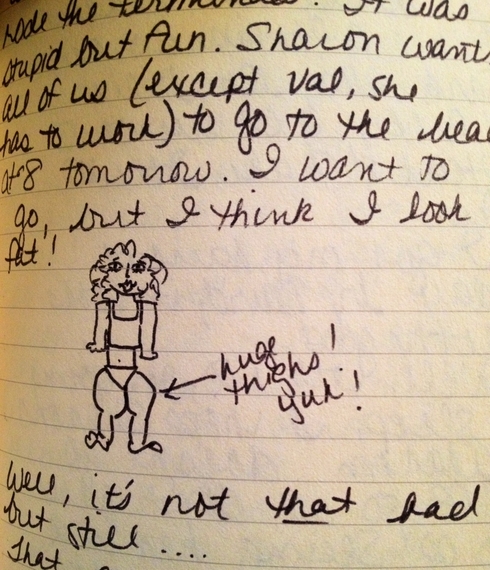 rode the terminator. It was
stupid but fun. Sharon want
all of us (except Val, she
has to work) to go to the bea
at 8 tomorrow. I want to
go, but I think I look
fat!
huge
thighs!
Yuk!
Well, it's not that bad
but still ....
That